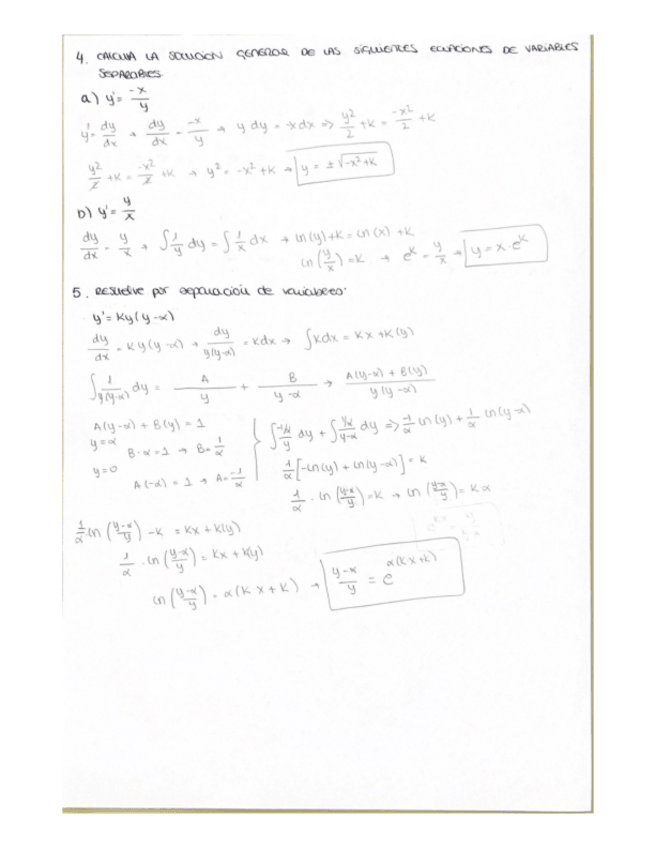 4. CALCULA LA SOLUCIÓN GENERAL DE LAS SIGUIENTES ECUACIONES DE VARIABLES
SEPARABLES.
a) y' = -x/y
y' = dy/dx → dy/dx = -x/y → y dy = -x dx ⇒ y²/2 + K = -x²/2 + K
y²/2 + K = -x²/2 + K → y² = -x² + K → y = ±√(-x² + K)
b) y' = y/x
dy/dx = y/x → ∫ 1/y dy = ∫ 1/x dx → ln(y) + K = ln(x) + K
ln(y/x) = K → e^K = y/x → y = x · e^K
5. Resuelve por separación de variables:
y' = Ky(y-α)
dy/dx = Ky(y-α) → dy/y(y-α) = Kdx → ∫Kdx = Kx + K(y)
∫ 1/y(y-α) dy = A/y + B/y-α → A(y-α) + B(y)/y(y-α)
A(y-α) + B(y) = 1
y = α
B·α = 1 → B = 1/α
y = 0
A(-α) = 1 → A = -1/α
∫ -1/α/y dy + ∫ 1/α/y-α dy ⇒ -1/α ln(y) + 1/α ln(y-α)
1/α [-ln(y) + ln(y-α)] = K
1/α · ln(y-α/y) = K → ln(y-α/y) = K·α
1/α ln(y-α/y) - K = Kx + K(y)
1/α · ln(y-α/y) = Kx + K(y)
ln(y-α/y) = α(Kx + K) → y-α/y = e^α(Kx+K)